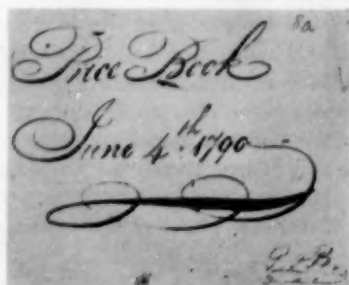 8a
Price Book
June 4th 1790